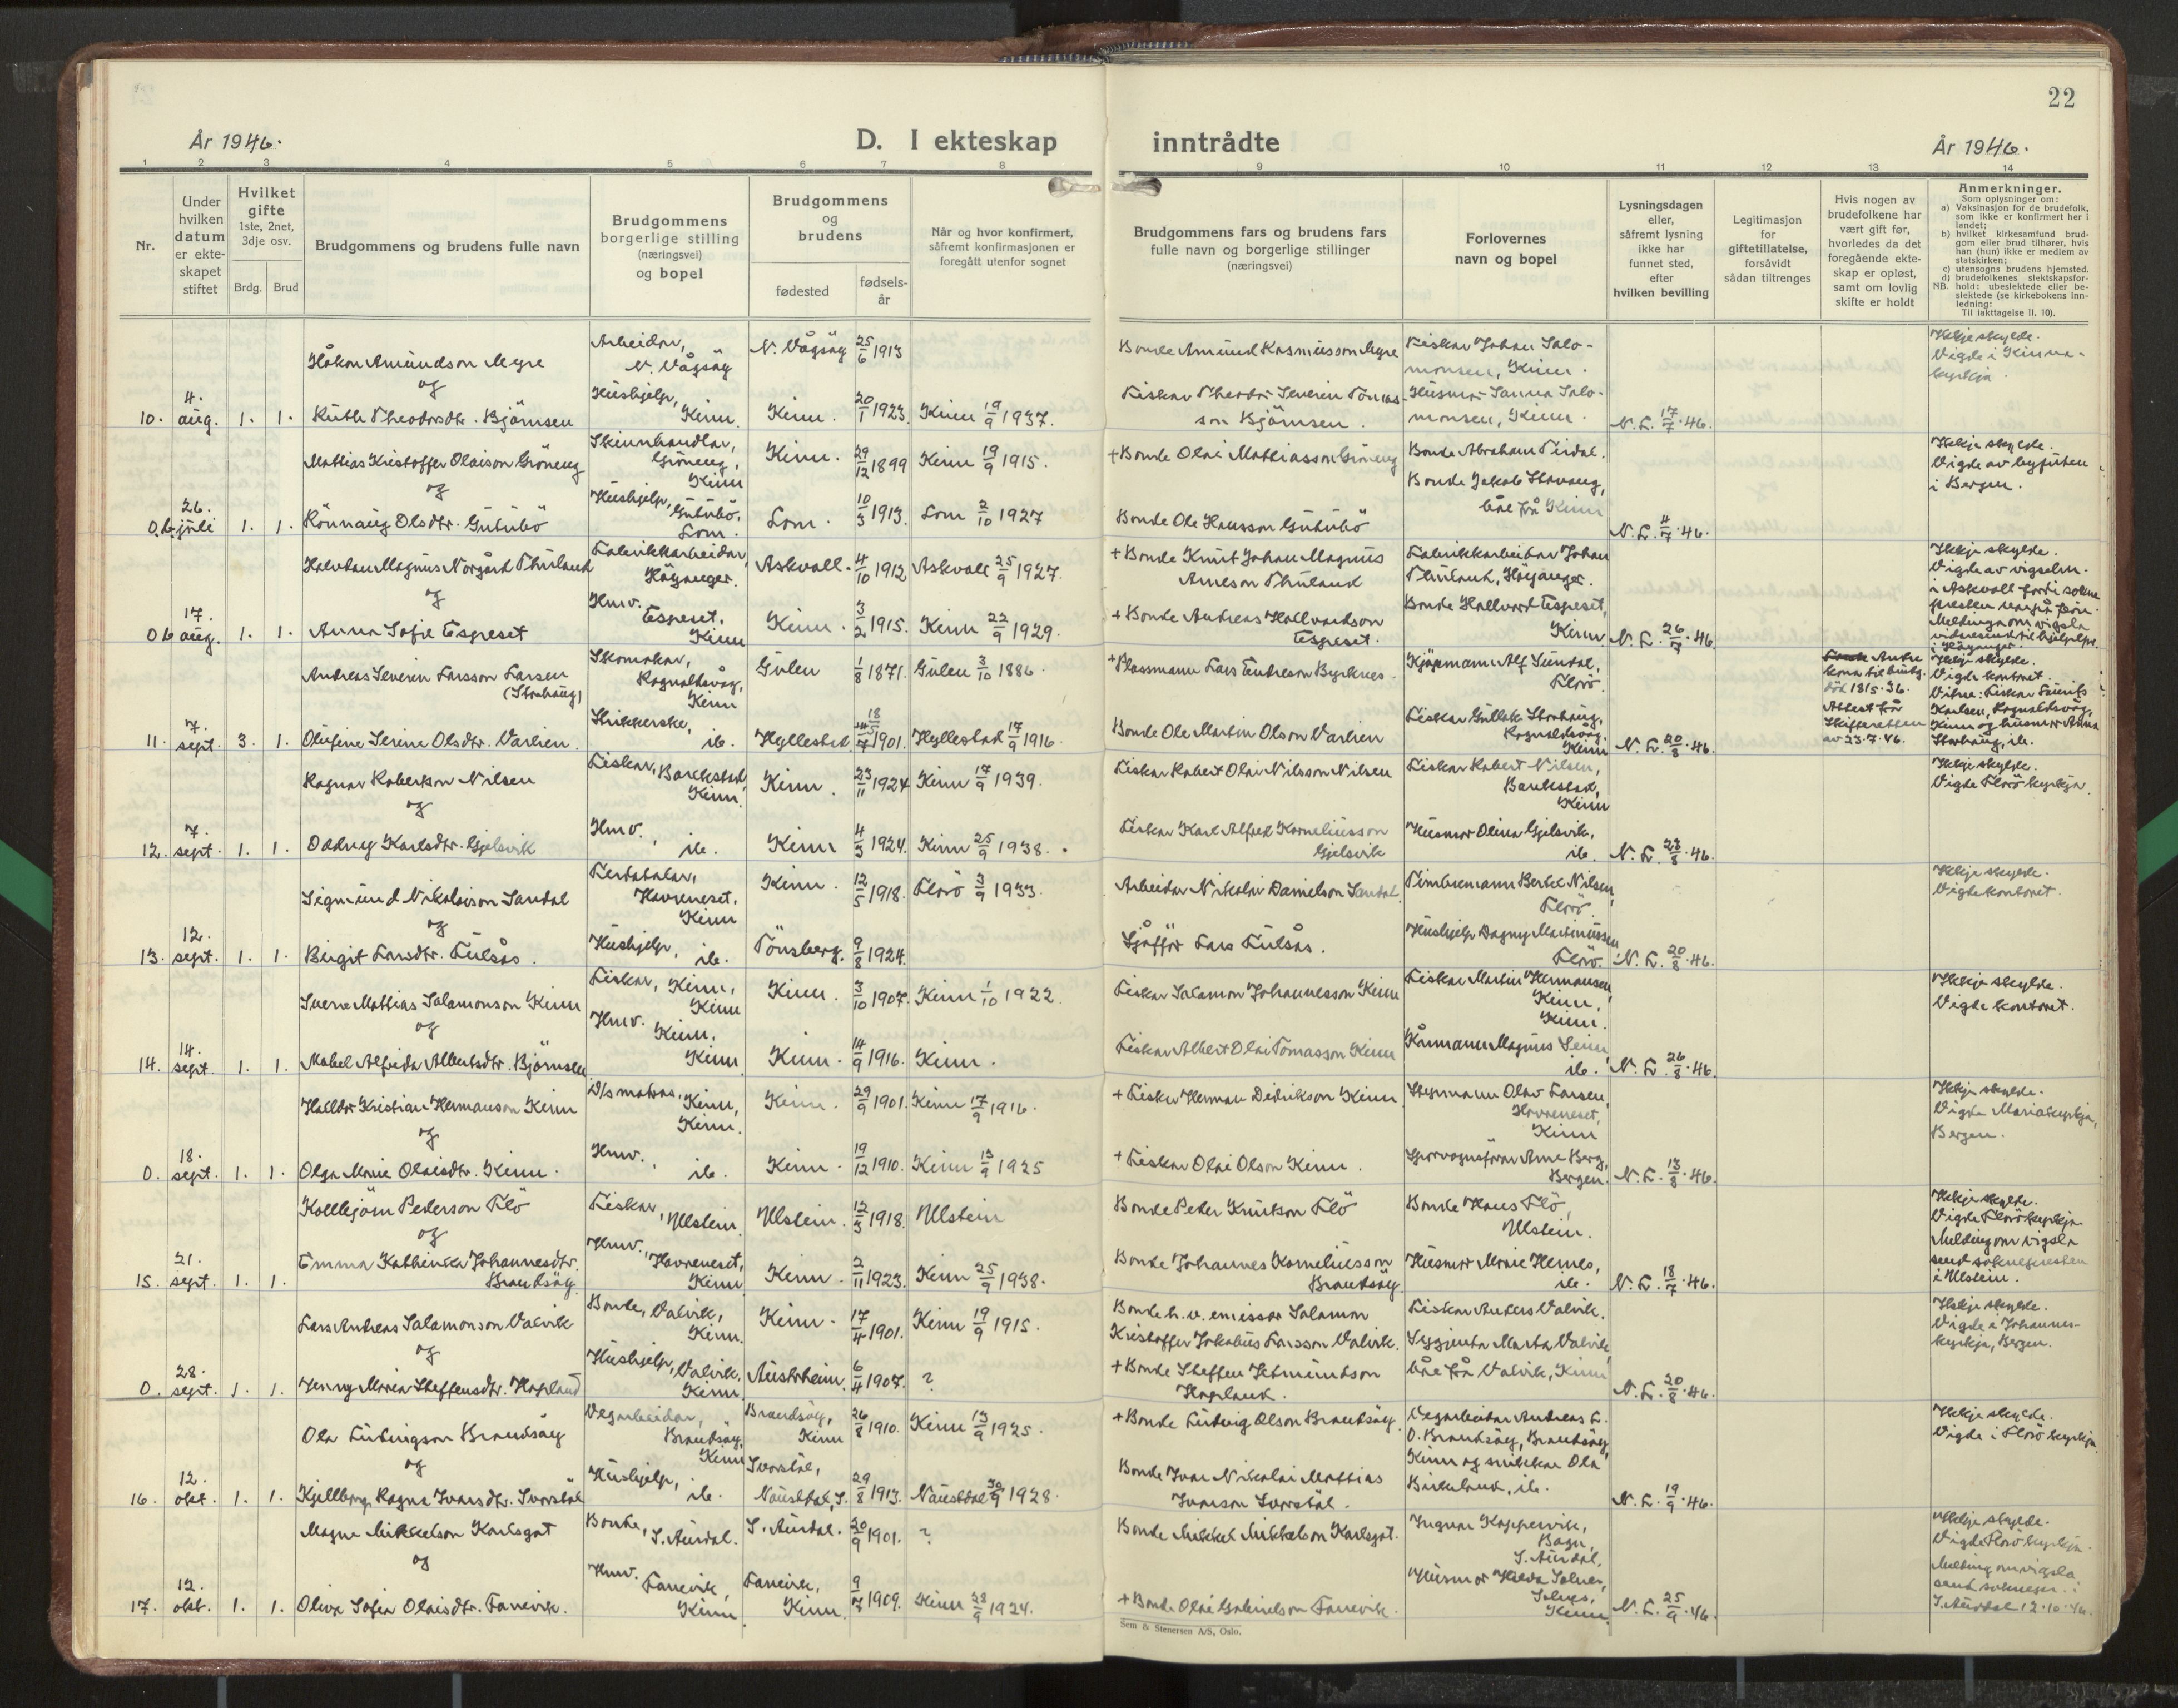 22
År 1946.
D. I ekteskap inntrådte
År 1946.
1 2 3 4 5 6 7 8 9 10 11 12 13 14
Nr.
Under hvilken datum er ekteskapet stiftet
Hvilket gifte 1ste, 2net, 3dje osv.
Brdg. Brud
Brudgommens og brudens fulle navn
Brudgommens borgerlige stilling (næringsvei) og bopel
Brudgommens og brudens
fødested
fødsels-år
Når og hvor konfirmert, såfremt konfirmasjonen er foregått utenfor sognet
Brudgommens fars og brudens fars fulle navn og borgerlige stillinger (næringsvei)
Forlovernes navn og bopel
Lysningsdagen eller, såfremt lysning ikke har funnet sted, efter hvilken bevilling
Legitimasjon for giftetillatelse, forsåvidt sådan tiltrenges
Hvis nogen av brudefolkene har vært gift før, hvorledes da det foregående ekteskap er opløst, samt om lovlig skifte er holdt
Anmerkninger.
Som oplysninger om:
a) Vaksinasjon for de brudefolk, som ikke er konfirmert her i landet;
b) hvilket kirkesamfund brudgom eller brud tilhører, hvis han (hun) ikke er medlem av statskirken;
c) utensogns brudens hjemsted.
d) brudefolkenes slektskapsforhold: ubeslektede eller beslektede (se kirkebokens innledning:
NB.
Til iakttagelse II. 10).
Håkon Amundson Myre
Arbeidar, N. Vågsöy
N. Vågsöy 25/6 1913
Bonde Amund Rasmusson Myre
Fiskar Johan Salomonsen, Kinn.
Ikkje skylde. Vigde i Kinnakyrkja.
og
10. 4. aug. 1. 1. Ruth Theodorsdtr. Björnsen
Hushjelp, Kinn.
Kinn. 20/1 1923. Kinn 19/9 1937.
Fiskar Theodor Severin Tomasson Björnsen.
Husmor Sanna Salomonsen, Kinn.
N. L. 17/7.46.
Mathias Kristoffer Olaison Gröneng
Skinnhandlar, Gröneng, Kinn
Kinn. 29/12 1899 Kinn 19/9 1915.
+ Bonde Olai Mathiasson Gröneng
Bonde Abraham Eirdal.
Ikkje skylde. Vigde av byfuten i Bergen.
og
0.6. 26. juli 1. 1. Rönnaug Olsdtr. Gutubö
Hushjelp, Gutubö, Lom.
Lom. 10/3 1913. Lom 2/10 1927
Bonde Ole Hansson Gutubö
Bonde Jakob Stavang, båe frå Kinn
N. L. 4/7.46.
Halvdan Magnus Norgård Thuland
Fabrikkarbeidar, Höyanger.
Askvoll. 4/10 1912 Askvoll 25/9 1927.
+ Bonde Knut Johan Magnus Arneson Thuland
Fabrikkarbeidar Johan Thuland, Höyanger.
Ikkje skylde. Vigde av vigselm. i Askvoll
og
0.6 17. aug. 1. 1. Anna Sofie Espeset
Hmv. Espeset, Kinn
Kinn. 3/2 1915. Kinn 22/9 1929.
+ Bonde Andreas Hallvardson Espeset.
Bonde Hallvard Espeset, Kinn.
N. L. 26/7.46.
Melding om vigsla vidaresend til hjelpepr. i Höyanger.
Andreas Severin Larsson Larsen (Storhaug)
Skomakar, Rognaldsvåg, Kinn
Gulen 1/8 1871. Gulen 3/10 1886.
+ Plassmann Lars Endreson Byrknes
Kjöpmann Alf Sundal, Florö.
Andre kona til brudg. död 18/5.36. Attest frå Skifteretten av 23.7.46.
Ikkje skylde. Vigde kontoret. Vitne: Fiskar Laurits Karlsen, Rognaldsvåg, Kinn og husmor Anna Storhaug, ib.
11. 7. sept. 3. 1. Olufine Serine Olsdtr. Varlien.
Strikkerske, ib.
Hyllestad 18/7 1901. Hyllestad 17/9 1916.
Bonde Ole Martin Olson Varlien
Fiskar Gullak Storhaug, Rognaldsvåg, Kinn
N. L. 20/8.46.
Ragnar Robertson Nilsen
Fiskar, Barekstad, Kinn.
Kinn. 23/11 1924 Kinn 17/9 1939.
Fiskar Robert Olai Nilsson Nilsen
Fiskar Robert Nilsen, Barekstad, Kinn
Ikkje skylde. Vigde Florö kyrkja.
og
12. 7. sept. 1. 1. Oddny Karlsdtr. Gjelsvik
Hmv. ib.
Kinn 4/3 1924. Kinn 25/9 1938.
Fiskar Karl Alfred Korneliusson Gjelsvik
Husmor Olina Gjelsvik, ib.
N. L. 23/8.46.
Sigmund Nikolaison Sandal
Havreneset, Kinn
Kinn. 12/5 1918. Florö 3/9 1933.
Arbeidar Nikolai Danielson Sandal
Timbremann Bertel Nilsen, Florö.
Ikkje skylde. Vigde kontoret.
og
13. 12. sept. 1. 1. Birgit Larsdtr. Fulsås.
Hushjelp, ib.
Tönsberg. 9/8 1924.
Sjåför Lars Fulsås.
Hushjelp Dagny Martinussen, Florö.
N. L. 20/8.46.
Sverre Mathias Salamonson Kinn
Fiskar, Kinn, Kinn
Kinn. 3/10 1907. Kinn 1/10 1922.
Fiskar Salamon Johannesson Kinn
Fiskar Martin Hermansen, Kinn, Kinn.
Ikkje skylde. Vigde kontoret.
og
14. 14. sept. 1. 1. Mabel Alfrida Albertsdtr. Björnsen
Hmv. Kinn, Kinn
Kinn. 14/9 1916. Kinn.
Fiskar Albert Olai Tomasson Kinn
Kårmann Magnus Seim, ib.
N. L. 26/8.46.
Halldor Kristian Hermanson Kinn
D/s matros, Kinn, Kinn.
Kinn. 29/9 1901. Kinn 17/9 1916.
+ Fiskar Herman Didrikson Kinn
Styrmann Olav Larsen, Havreneset, Kinn
Ikkje skylde. Vigde Mariakyrkja, Bergen.
og
0. 18. sept. 1. 1. Olga Marie Olaisdtr. Kinn.
Hmv. ib.
Kinn. 19/12 1910. Kinn 13/9 1925
+ Fiskar Olai Olson Kinn.
Sporvognsförar Arne Berg, Bergen.
N. L. 13/8.46.
Kolbjörn Pederson Flö
Fiskar, Ulstein.
Ulstein. 12/3 1918. Ulstein
Bonde Peder Knutson Flö
Bonde Hans Flö, Ulstein.
Ikkje skylde. Vigde Florö kyrkja. Melding om vigsla send sokneprosten i Ulstein.
og
15. 21. sept. 1. 1. Emma Kathinka Johannesdtr. Brandsöy
Hmv., Havreneset, Kinn
Kinn. 2/11 1923. Kinn 25/9 1938.
Bonde Johannes Korneliusson Brandsöy
Husmor Marie Hennes, ib.
N. L. 18/7.46.
Lars Andreas Salamonson Valvik
Bonde, Valvik, Kinn.
Kinn. 17/4 1901. Kinn 19/9 1915.
Bonde h. v. emissær Salamon Kristoffer Jokobus Larsson Valvik.
Fiskar Anders Valvik.
Ikkje skylde. Vigde i Johanneskyrkja, Bergen.
og
0. 28. sept. 1. 1. Jenny Maria Steffensdtr. Hopland
Hushjelp, Valvik, Kinn
Austrheim. 6/4 1907. ?
+ Bonde Steffen Jetmundson Hopland.
Syggjenta Marta Valvik, båe frå Valvik, Kinn
N. L. 20/8.46.
Ola Ludvigson Brandsöy
Vegarbeidar, Brandsöy, Kinn
Brandsöy, Kinn 26/8 1910. Kinn 13/9 1925.
+ Bonde Ludvig Olson Brandsöy
Vegarbeidar Andreas L. O. Brandsöy, Brandsöy, Kinn og snikkar Ola Birkeland, ib.
Ikkje skylde. Vigde i Florö kyrkja
og
16. 12. okt. 1. 1. Kjellborg Ragna Ivarsdtr. Svorstöl
Hushjelp, ib.
Svorstöl, Naustdal, S. 29/8 1913. Naustdal 30/9 1928.
Bonde Ivar Nikolai Mathias Ivarson Svorstöl.
N. L. 19/9.46.
Magne Mikkelson Karlsgot
Bonde, S. Aurdal.
S. Aurdal. 20/9 1901. ?
Bonde Mikkel Mikkelson Karlsgot.
Ingvar Koppervik, Bagn, S. Aurdal.
Ikkje skylde. Vigde Florö kyrkja. Melding om vigsla send soknepr. i S. Aurdal 12.10.46.
og
17. 12. okt. 1. 1. Oliva Sofia Olaisdtr. Fanevik.
Hmv. Fanevik, Kinn
Fanevik, Kinn. 9/7 1909. Kinn 28/9 1924.
+ Bonde Olai Gabrielson Fanevik.
Husmor Hilda Solnes, Solnes, Kinn
N. L. 25/9.46.
Sem & Stenersen A/S, Oslo.